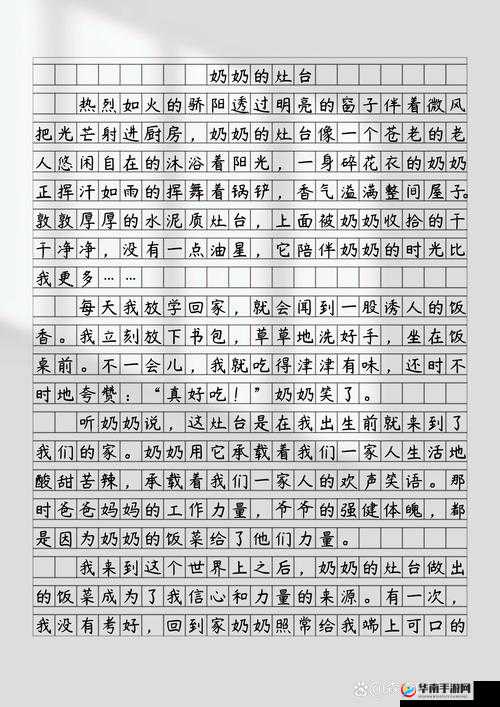 奶奶的灶台
热烈如火的骄阳透过明亮的窗子伴着微风
把光芒射进厨房，奶奶的灶台像一个苍老的老
人悠闲自在的沐浴着阳光，一身碎花衣的奶奶
正挥汗如雨的挥舞着锅铲，香气溢满整间屋子。
敦敦厚厚的水泥质灶台，上面被奶奶收拾的干
干净净，没有一点油星，它陪伴奶奶的时光比
我更多……
每天我放学回家，就会闻到一股诱人的饭
香。我立刻放下书包，草草地洗好手，坐在饭
桌前。不一会儿，我就吃得津津有味，还时不
时地夸赞：“真好吃！”奶奶笑了。
听奶奶说，这灶台是在我出生前就来到了
我们的家。奶奶用它承载着我们一家人生活地
酸甜苦辣，承载着我们一家人的欢声笑语。那
时爸爸妈妈的工作力量，爷爷的强健体魄，都
是因为奶奶的饭菜给了他们力量。
我来到这个世界上之后，奶奶的灶台做出
的饭菜成为了我信心和力量的来源。有一次，
我没有考好，回到家奶奶照常给我端上可口的
华南手游网